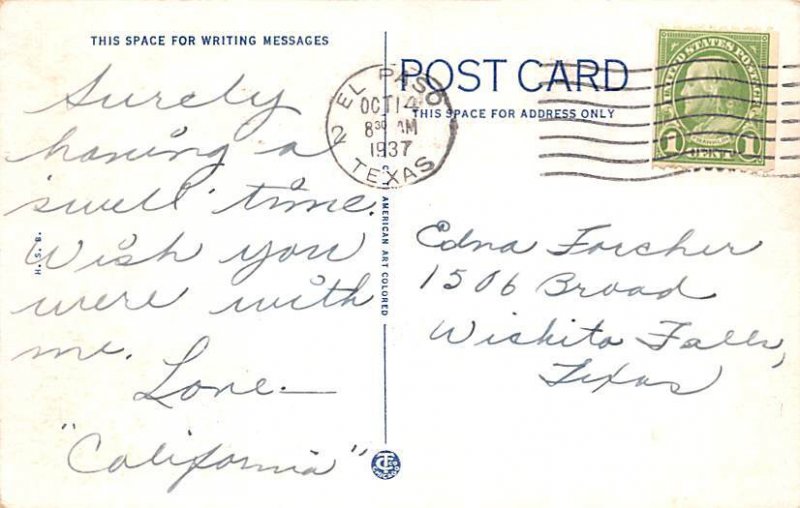 THIS SPACE FOR WRITING MESSAGES
Surely
having a
swell time.
Wish you
were with
me.
Love—
"California"
H.S.B.
AMERICAN ART COLORED
POST CARD
THIS SPACE FOR ADDRESS ONLY
EL PASO
OCT 14
8 30 AM
1937
TEXAS
2
UNITED STATES POSTAGE
1 FRANKLIN 1
CENT
Edna Forcher
1506 Broad
Wishita Falls,
Texas